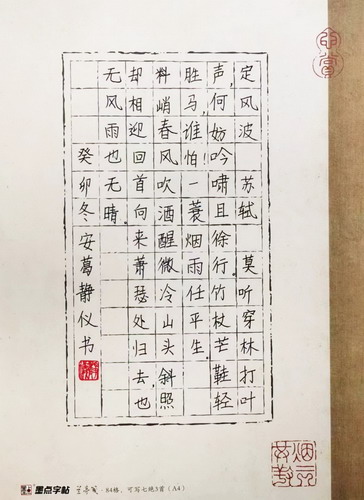 定风波 苏轼 莫听穿林打叶
声,何妨吟啸且徐行。竹杖芒鞋轻
胜马,谁怕!一蓑烟雨任平生。
料峭春风吹酒醒微冷山头斜照
却相迎回首向来萧瑟处归去,也
无风雨也无晴。
癸卯冬安葛静仪书
墨点字帖 兰亭笺·84格,可写七绝3首(A4)